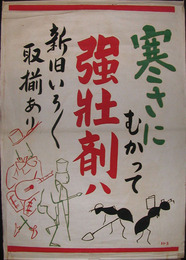 寒さに
むかって
強壮剤ハ
新旧いろ〱
取揃あり